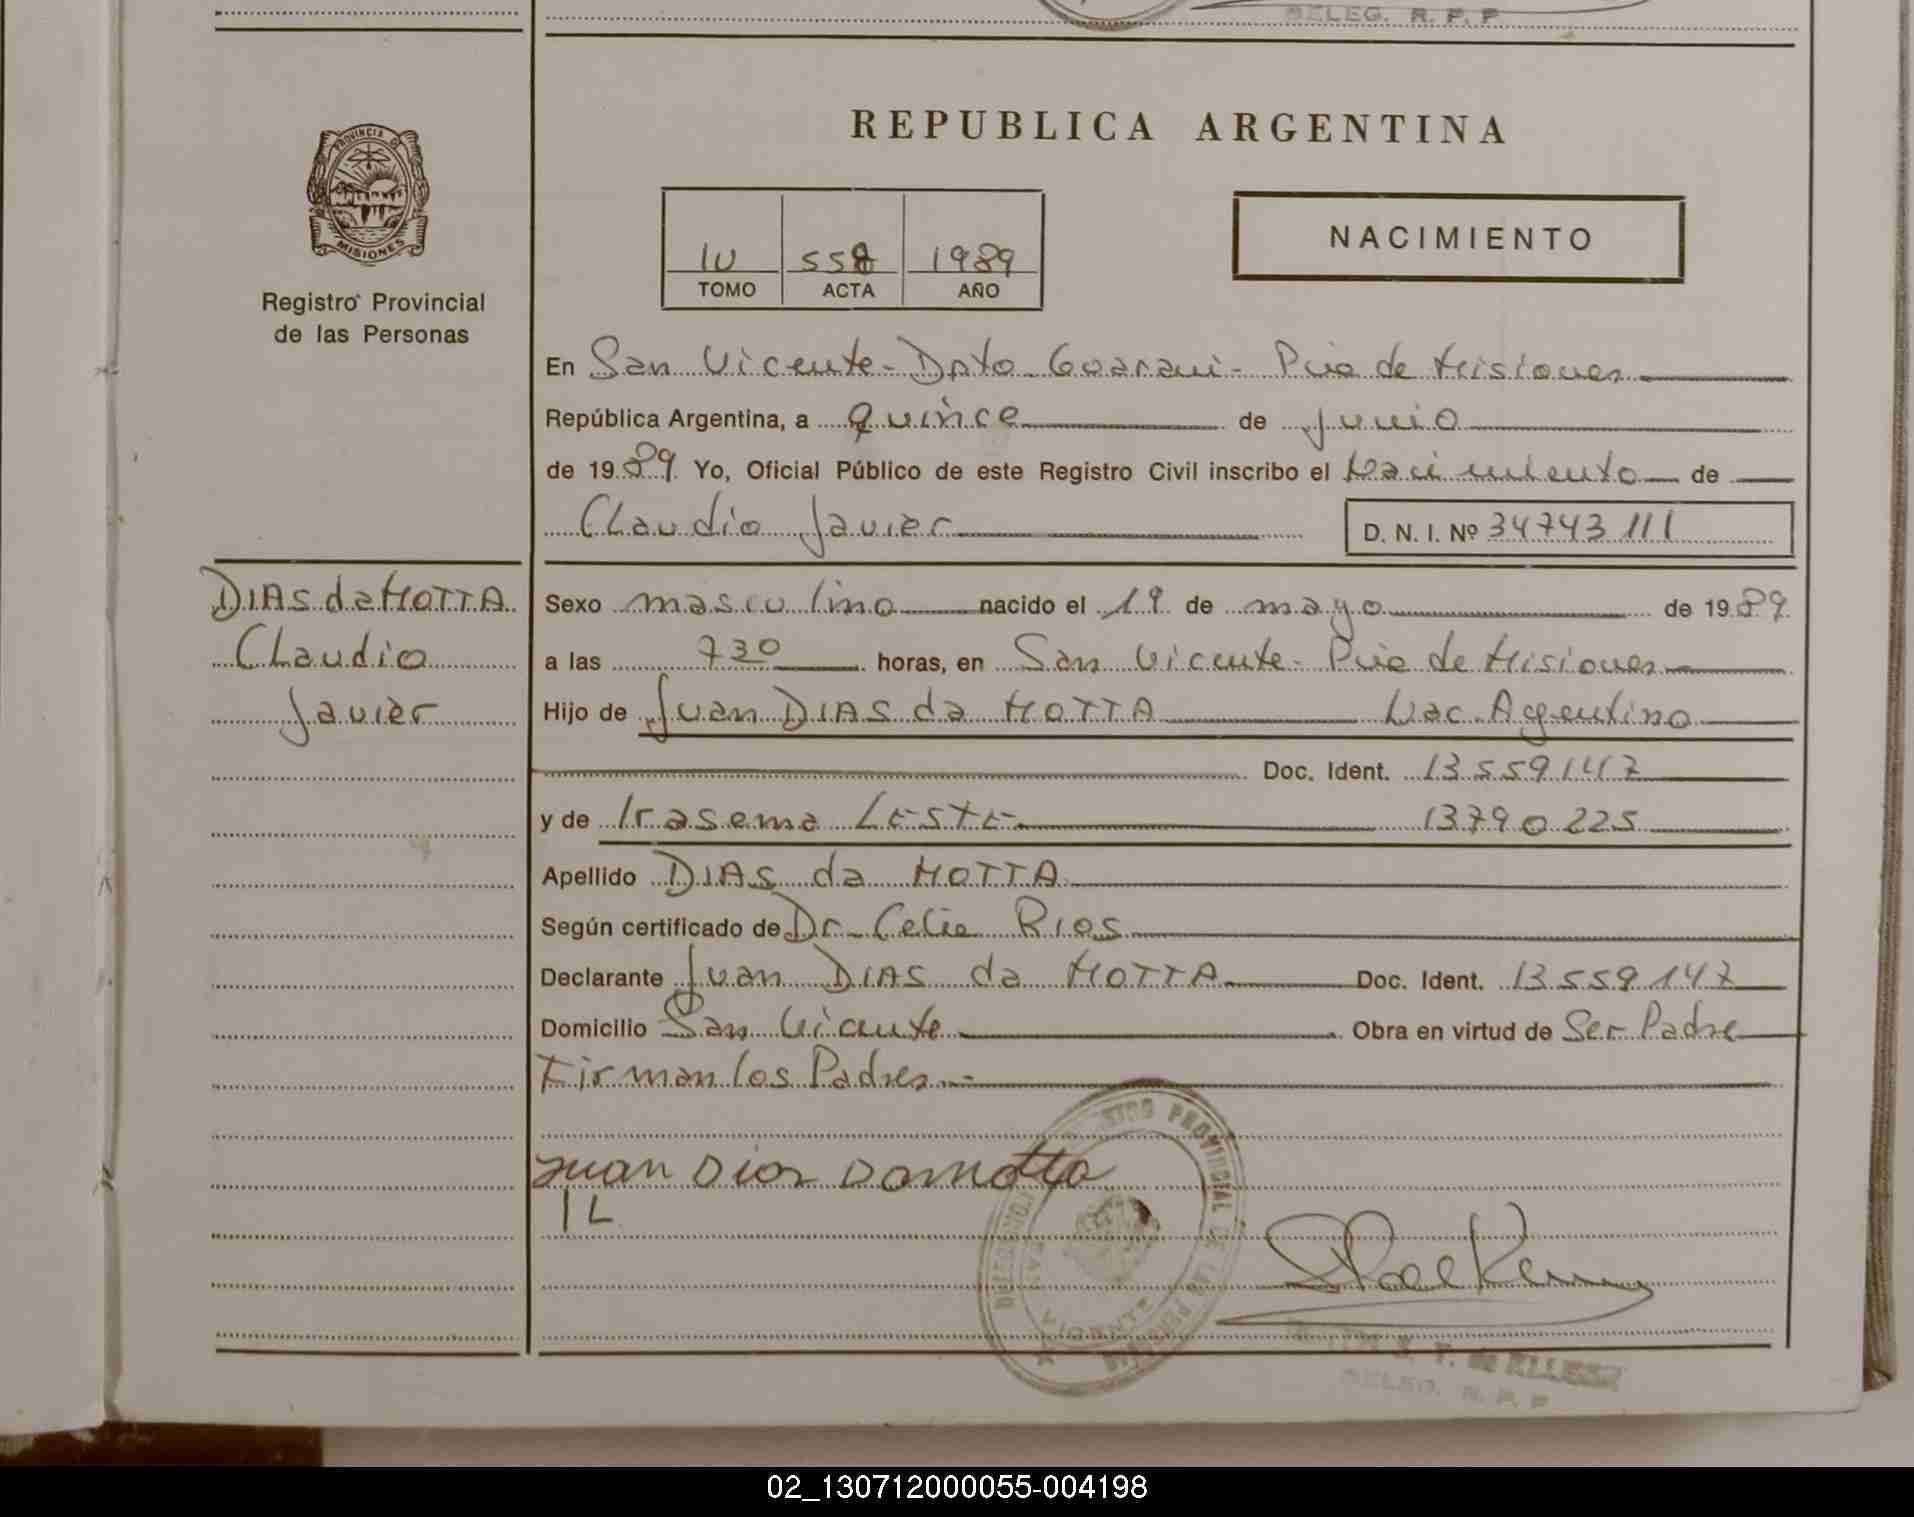 DELEG. R. P. P.
REPUBLICA ARGENTINA
PROVINCIA DE
MISIONES
Registro Provincial
de las Personas
NACIMIENTO
IV 558 1989
TOMO ACTA AÑO
En San Vicente - Dpto Guarani - Pcia de Misiones
República Argentina, a quince de junio
de 1989 Yo, Oficial Público de este Registro Civil inscribo el Nacimiento de
Claudio Javier D. N. I. Nº 34743111
DIAS da MOTTA
Claudio
Javier
Sexo masculino nacido el 19 de mayo de 1989
a las 730 horas, en San Vicente - Pcia de Misiones
Hijo de Juan DIAS da MOTTA Nac. Argentino
Doc. Ident. 13559147
y de Irasema LESTE 13790225
Apellido DIAS da MOTTA
Según certificado de Dr. Celia RIOS
Declarante Juan DIAS da MOTTA Doc. Ident. 13559147
Domicilio San Vicente Obra en virtud de Ser Padre
Firman los Padres.-
Juan Dias Damotta
IL
REGISTRO PROVINCIAL DE LAS PERSONAS
VICENTE
S. T. de
DELEG. R. P. P
02_130712000055-004198